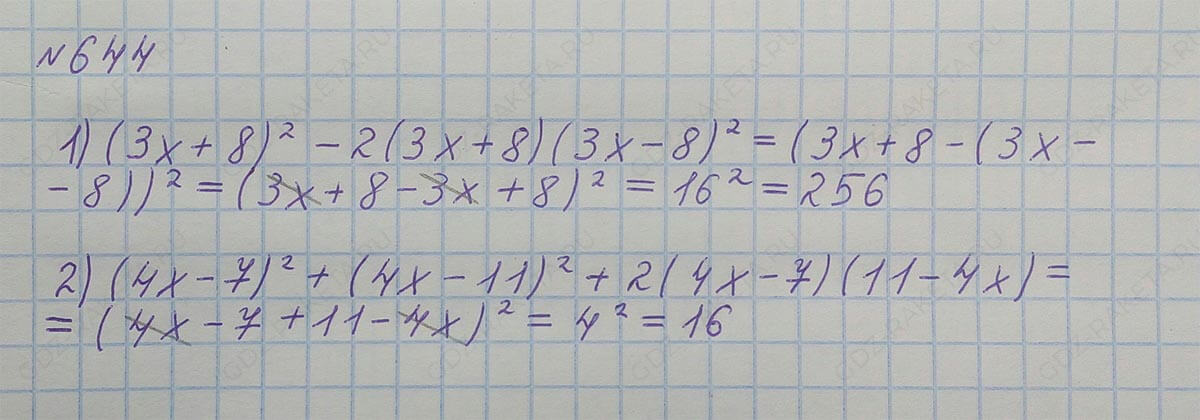 №644
1) (3x + 8)² - 2(3x + 8)(3x - 8)² = (3x + 8 - (3x -
- 8))² = (3x + 8 - 3x + 8)² = 16² = 256
2) (4x - 7)² + (4x - 11)² + 2(4x - 7)(11 - 4x) =
= (4x - 7 + 11 - 4x)² = 4² = 16